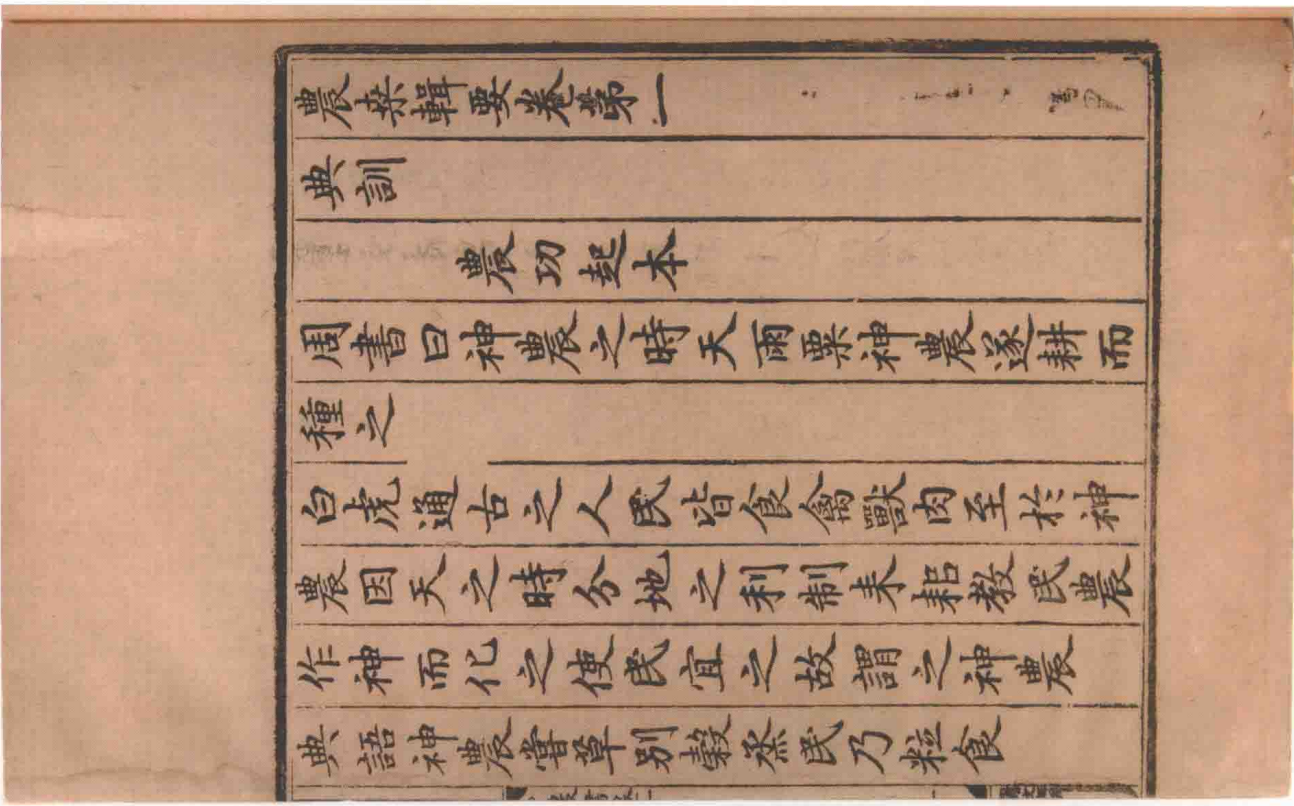 農桒輯要卷第一
典訓
農功起本
周書曰神農之時天雨粟神農遂耕而
種之
白虎通古之人民皆食禽獸肉至於神
農因天之時分地之利制耒耜教民農
作神而化之使民宜之故謂之神農
典語神農嘗草别榖烝民乃粒食